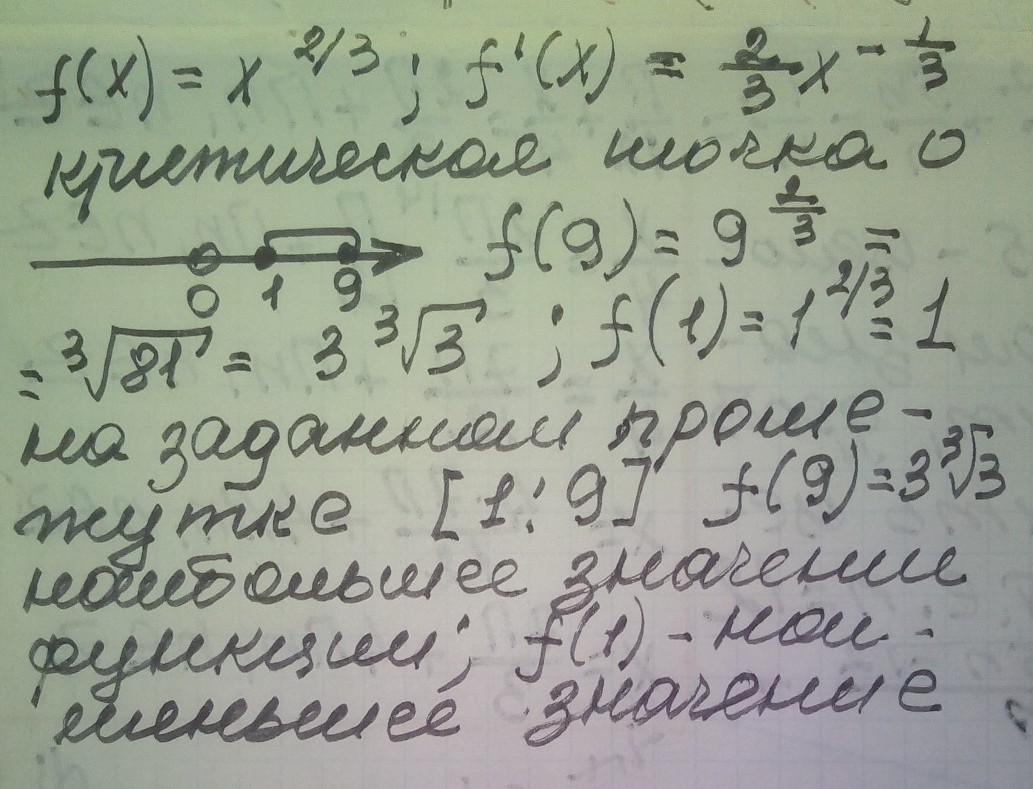 f(x) = x^2/3; f'(x) = 2/3 x^-1/3
критическая точка 0
0 1 9 f(9) = 9^2/3 =
= ∛81 = 3∛3 ; f(1) = 1^2/3 = 1
на заданном проме-
жутке [1; 9] f(9) = 3∛3
наибольшее значение
функции; f(1) - наи-
меньшее значение